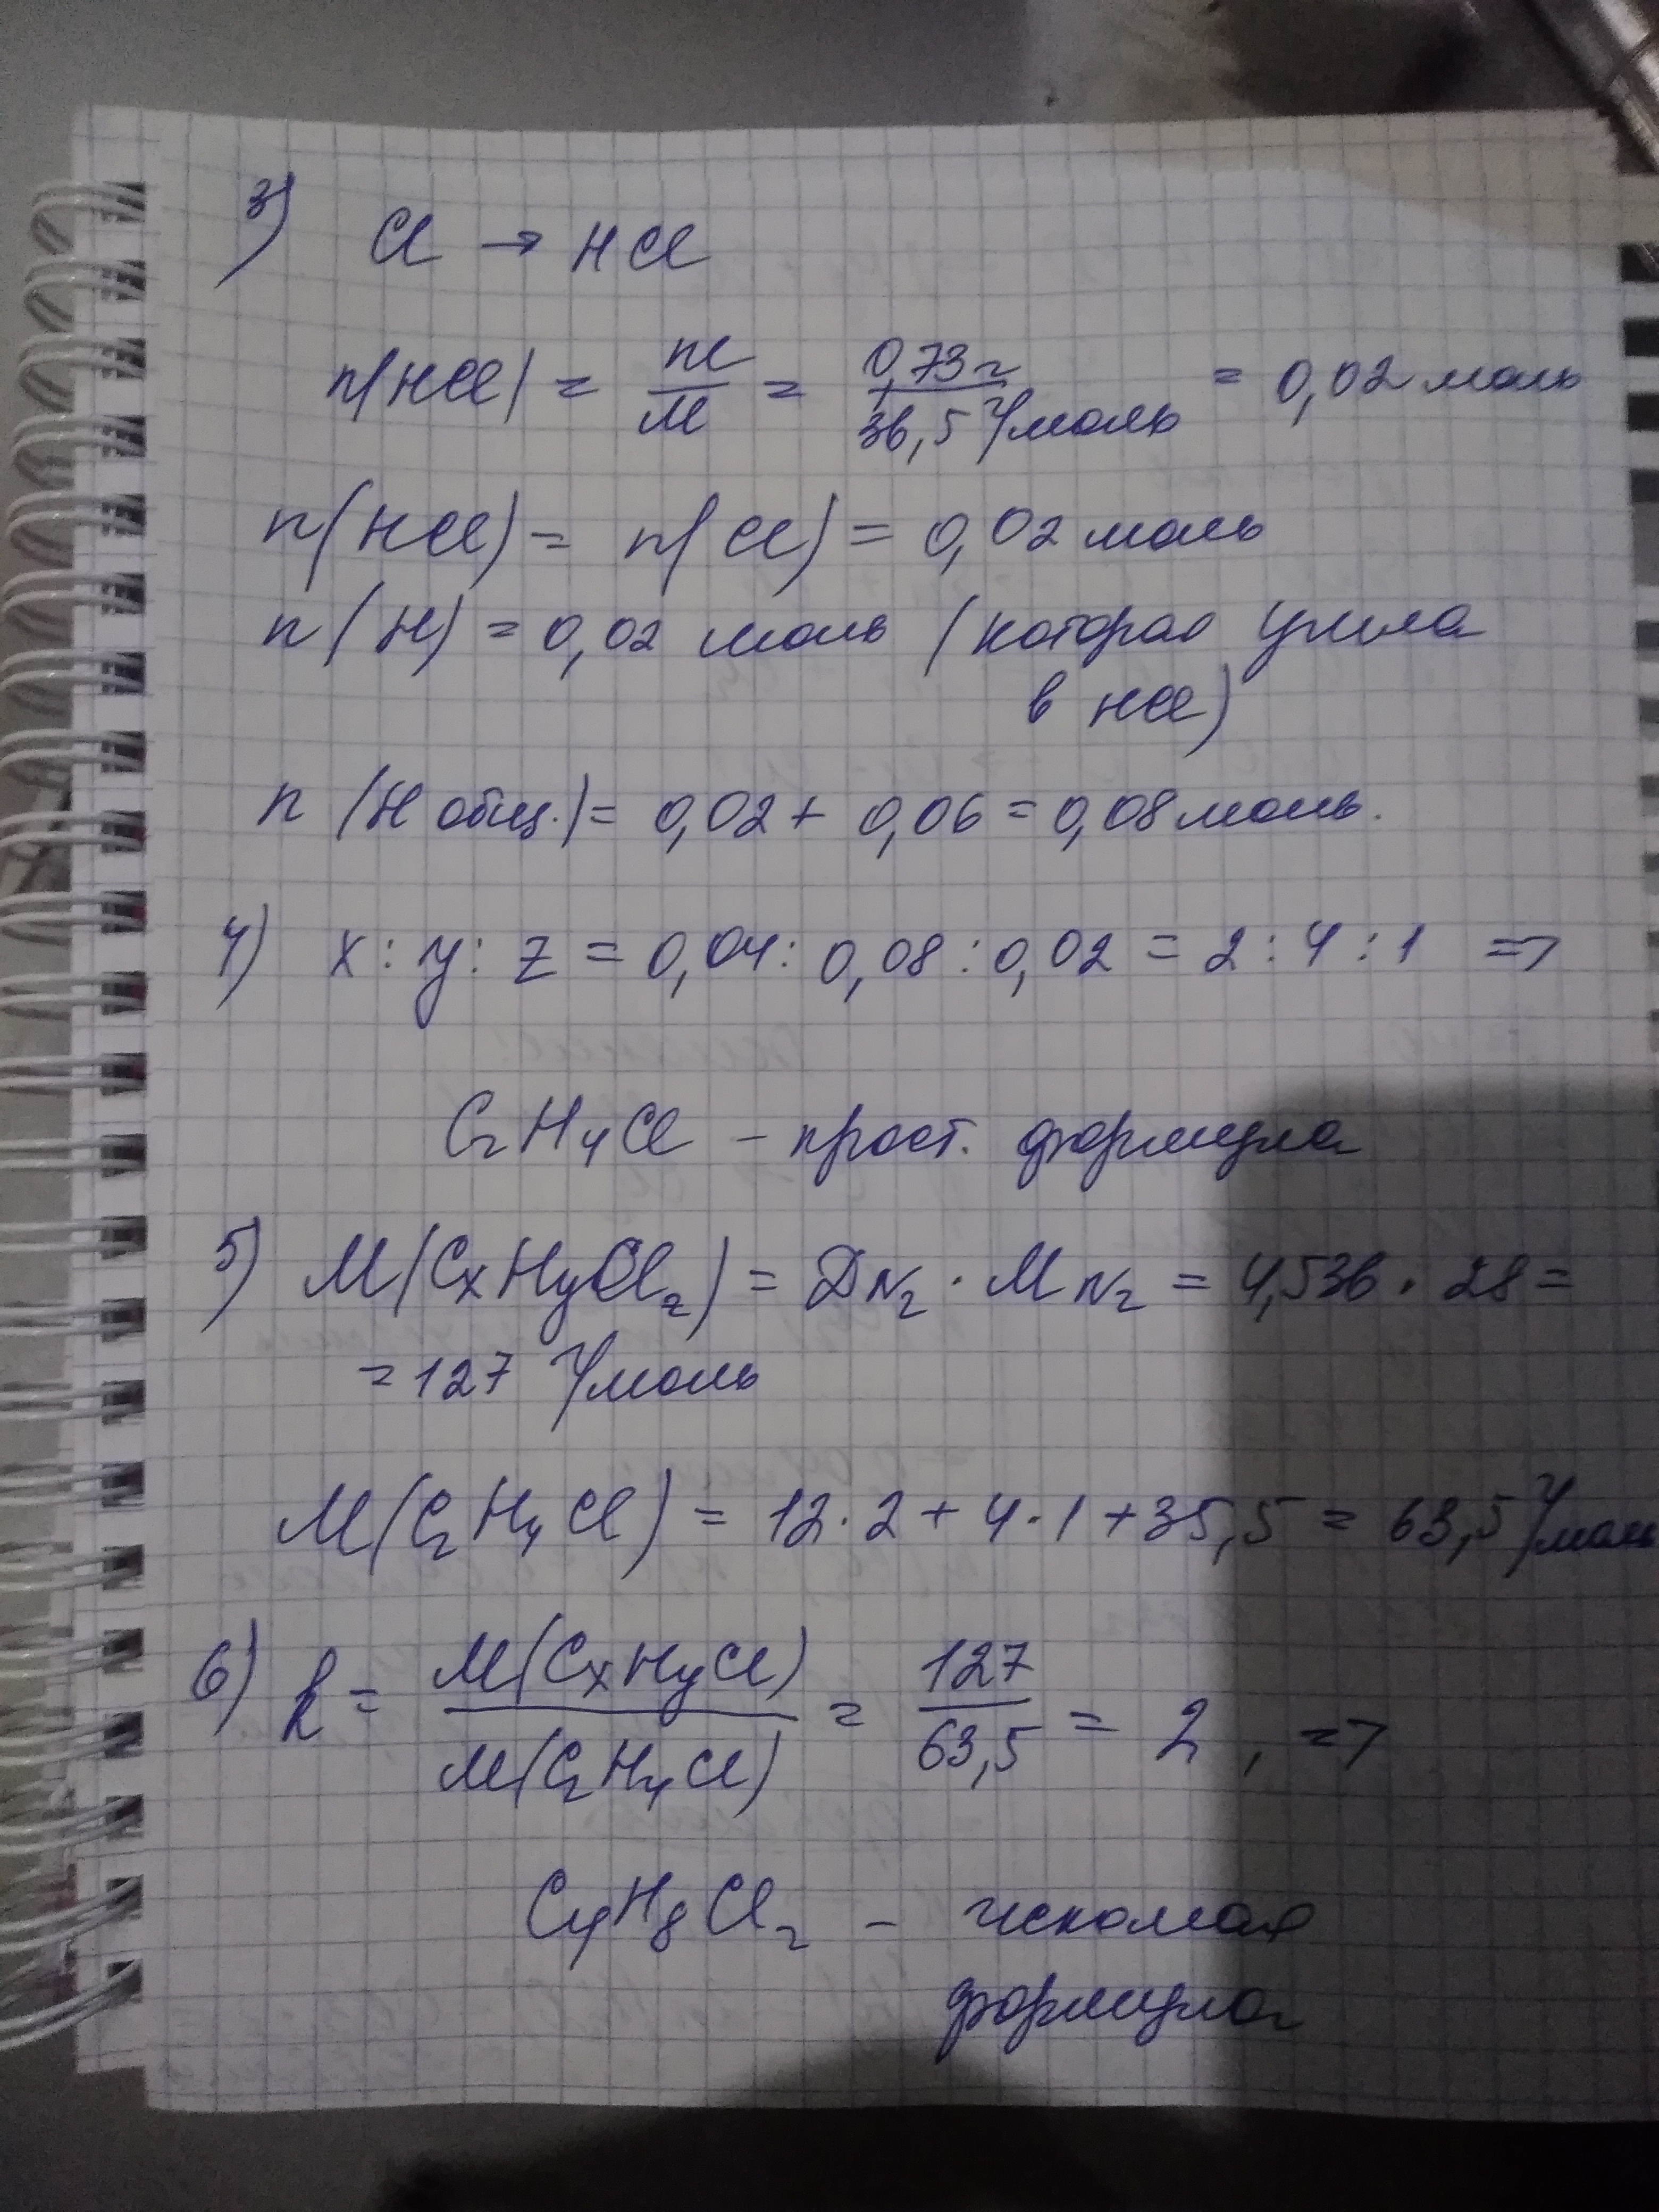 3) Cl → HCl
n(HCl) = m/M = 0,73 г/36,5 г/моль = 0,02 моль
n(HCl) = n(Cl) = 0,02 моль
n(H) = 0,02 моль (которая ушла
в HCl)
n (H общ.) = 0,02 + 0,06 = 0,08 моль.
4) x : y : z = 0,04 : 0,08 : 0,02 = 2 : 4 : 1 =>
C₂H₄Cl – прост. формула
5) M(CxHyClz) = DN₂ · MN₂ = 4,536 · 28 =
= 127 г/моль
M(C₂H₄Cl) = 12·2 + 4·1 + 35,5 = 63,5 г/моль
6) k = M(CxHyCl)/M(C₂H₄Cl) = 127/63,5 = 2, =>
C₄H₈Cl₂ – искомая
формула